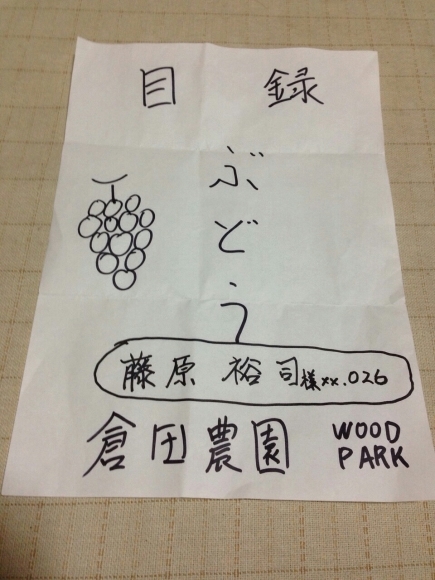 目録
ぶどう
藤原裕司様xx.026
倉田農園
WOOD
PARK